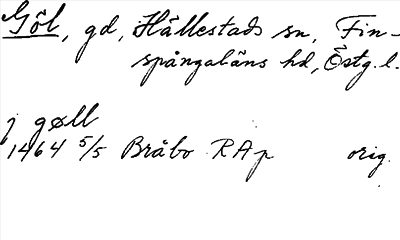 Göl, gd, Hällestads sn, Fin-
spångaläns hd, Östg. l.
j gøll
1464 5/5 Bråbo RAp orig.